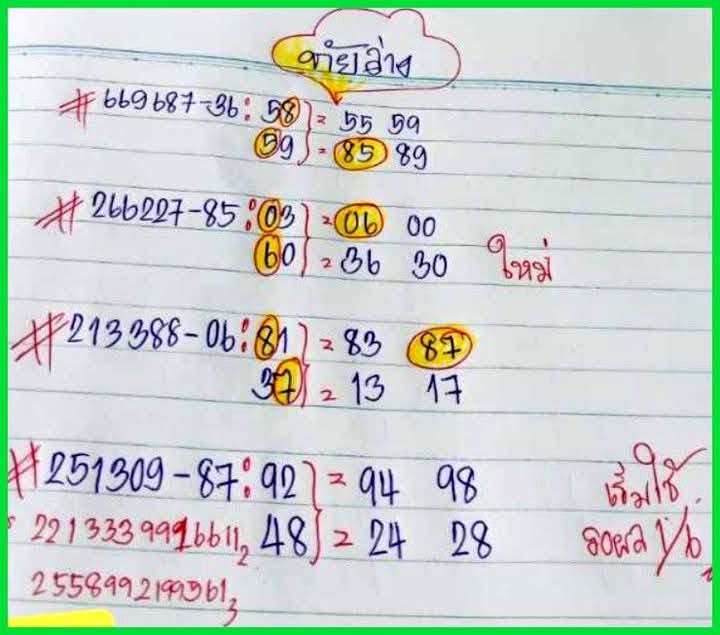 ท้ายล่าง
# 669687-36: 58 } = 55 59
59 } = 85 89
# 266227-85: 03 } = 06 00
60 } = 36 30 ใหม่
# 213388-06: 81 } = 83 87
37 } = 13 17
# 251309-87: 92 } = 94 98 เริ่มใช้
48 } = 24 28 รอผล 1/6